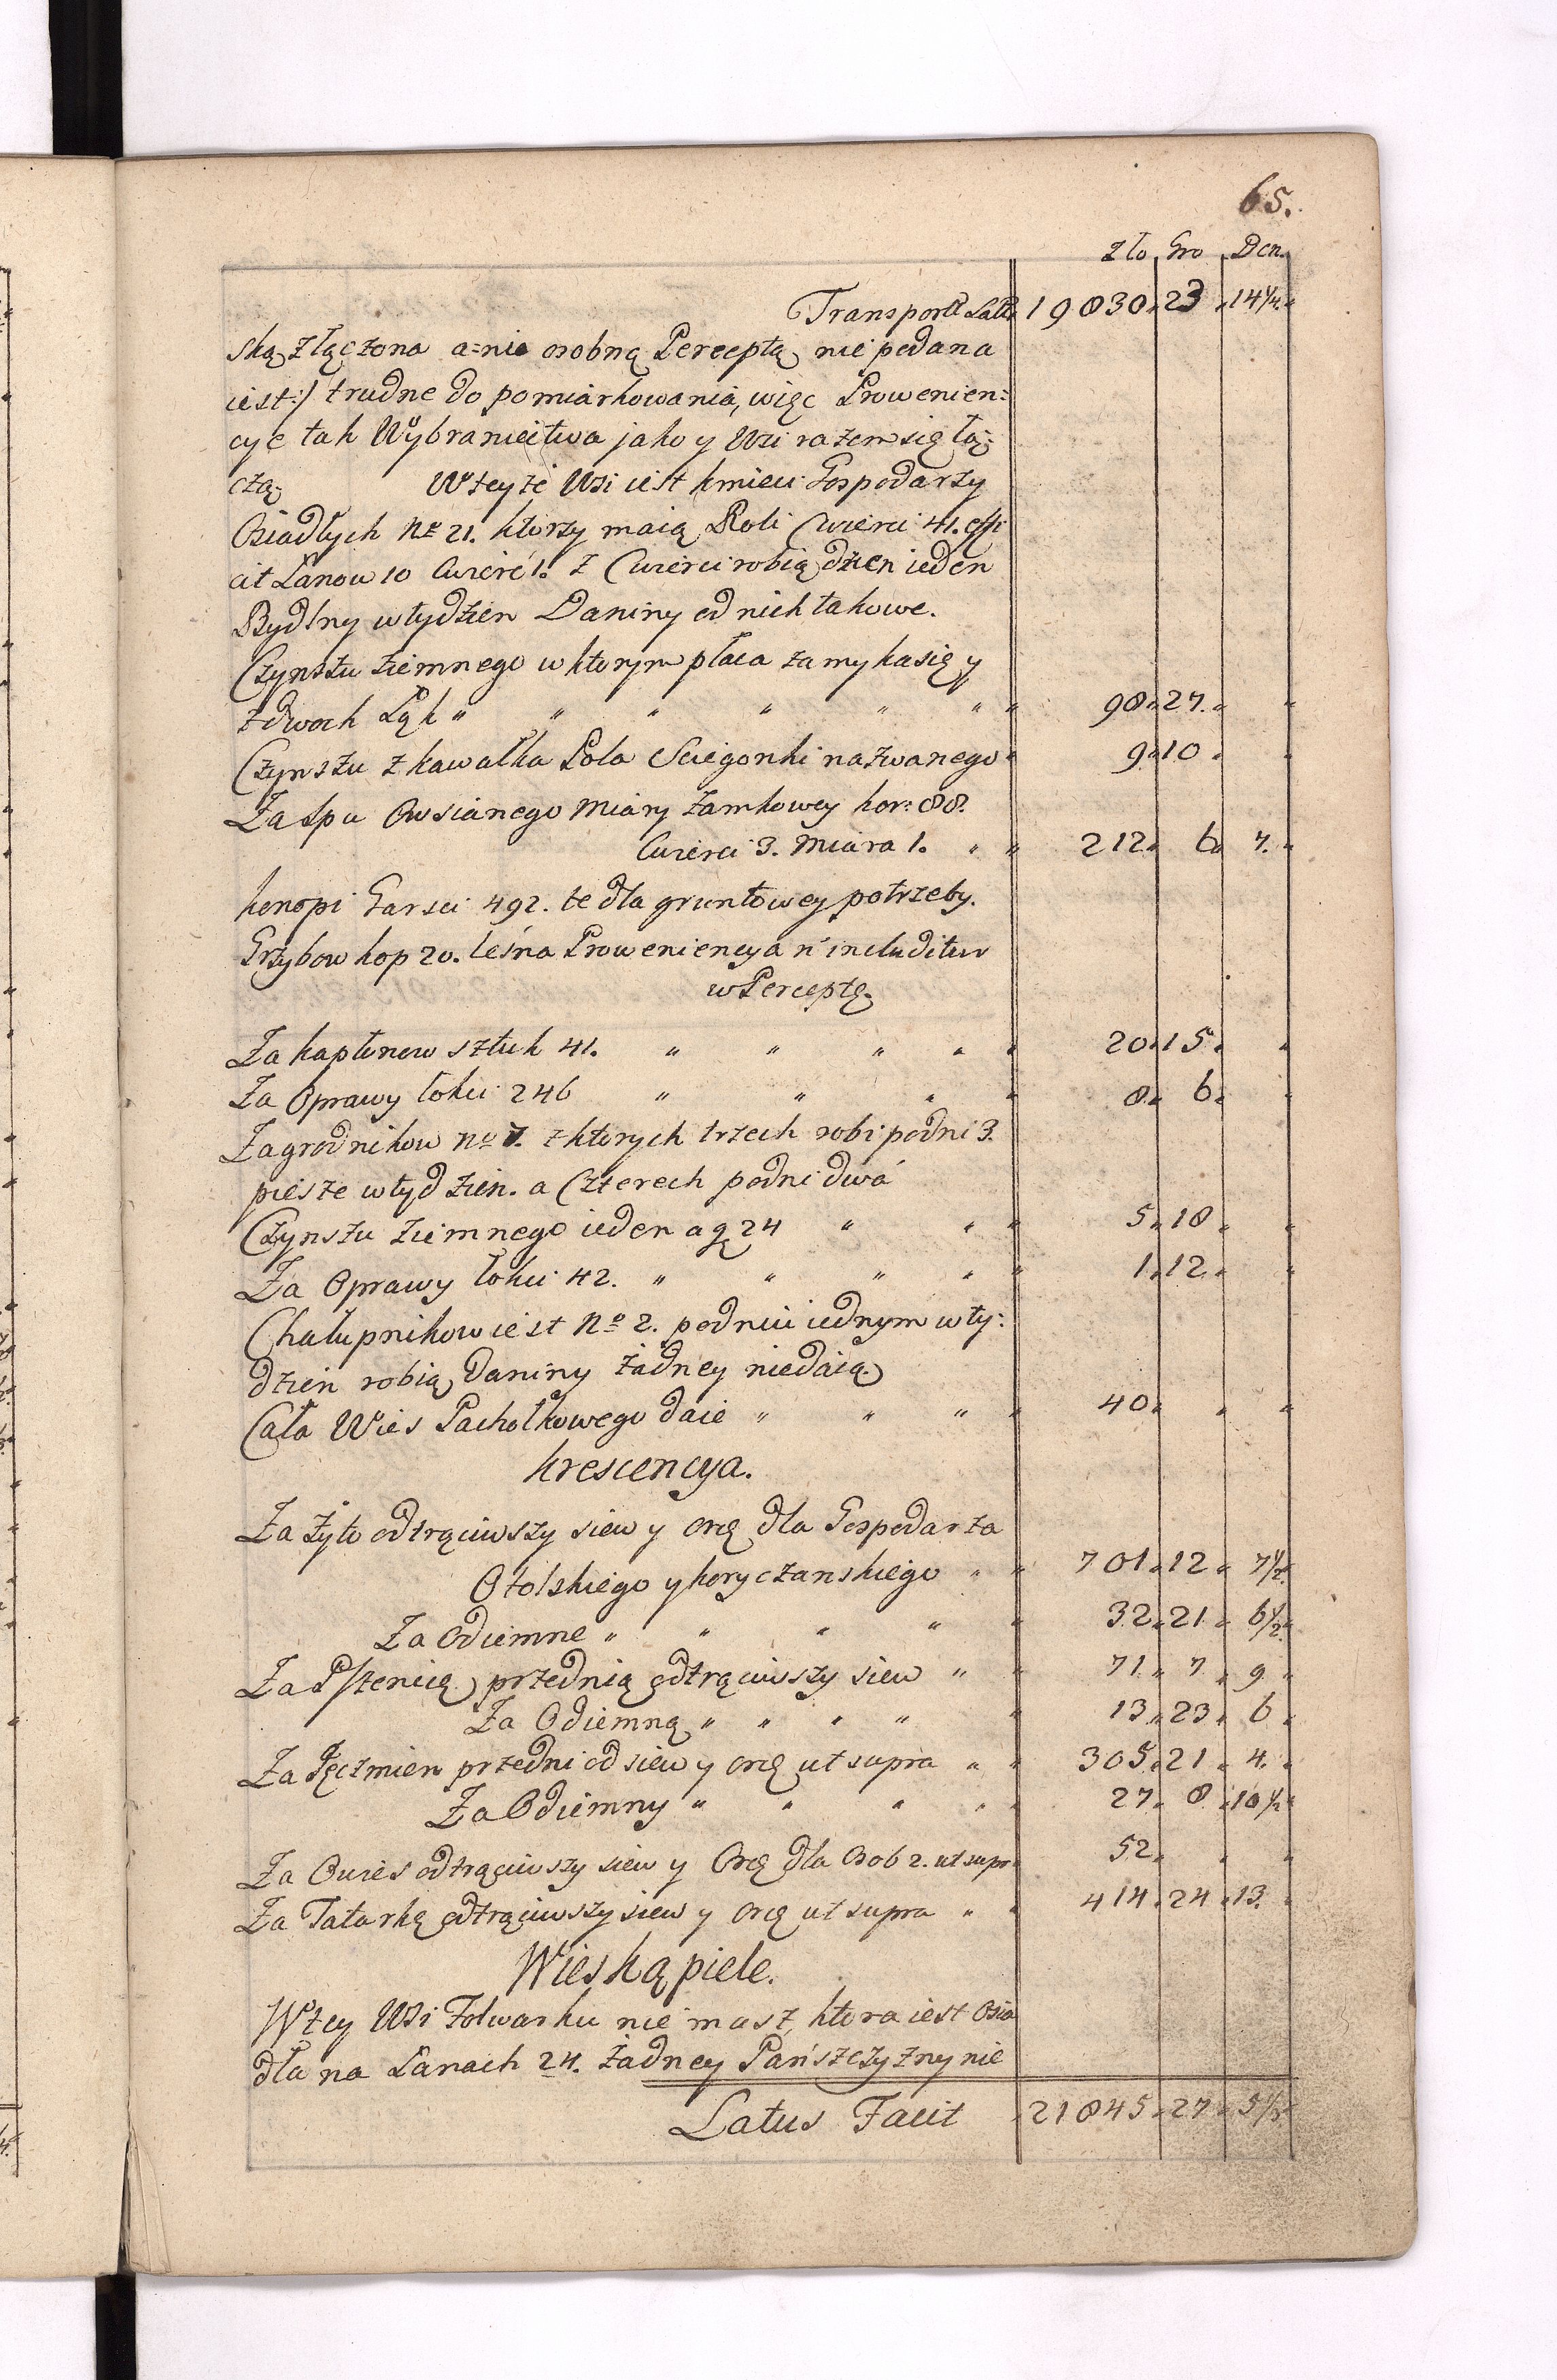 65.
Zło Gro Den.
Transport Lat. 19830 „ 23 „ 14 1/4 „
ską złączona a=nie osobną Perceptą nie podana
iest:/ trudne do pomiarkowania, więc Prowenien:
cye tak Wybraniectwa jako y Wsi razem się łą:
czą. W teyże Wsi iest kmieci Gospodarzy
Osiadłych No 21. ktorzy maią Roli Cwierci 41. effi
cit Łanow 10 Cwierć 1. Z Cwierci robią dzien ieden
Bydlny w tydzien Daniny od nich takowe.
Czynszu ziemnego w ktorym płaca zamyka się y
z dwoch Łąk „ „ „ „ „ „ „ 98 „ 27. „ „
Czynszu z kawałka Pola Sciegonki nazwanego „ 9 „ 10 „ „
Za Spu Owsianego Miary Zamkowey kor: 88.
Cwierci 3. Miara 1. „ „ 212 „ 6 „ 7. „
konopi Garsci 492. te dla gruntowey potrzeby.
Grzybow kop 20. leśna Prowenencya n includitur
w Perceptę.
Za kapłonow sztuk 41. „ „ „ „ „ 20 „ 15 „ „
Za Oprawy łokci 246 „ „ „ „ 8 „ 6 „ „
Zagrodnikow No 7. z ktorych trzech robi po dni 3.
piesze w tydzien. a Czterech po dni dwa
Czynszu ziemnego ieden a g 24 „ „ „ 5 „ 18 „ „
Za Oprawy łokci 42. „ „ „ „ „ 1 „ 12 „ „
Chałupnikow iest No 2. po dniu iednym w ty:
dzien robią, Daniny żadney nie daią.
Cała Wies Pachołkowego daie „ „ „ „ 40 „ „ „
krescencya.
Za Zyto odtrąciwszy siew y orę dla Gospodarza
Otolskiego y koryczanskiego „ „ 701 „ 12 „ 7 1/2.
Za Odiemne „ „ „ „ „ 32 „ 21 „ 6 1/2 „
Za Pszenicę przednią odtrąciwszy siew „ „ 71 „ 7 „ 9 „
Za Odiemną „ „ „ „ „ 13 „ 23 „ 6 „
Za Jęczmien przedni od siew y orę ut supra „ „ 305 „ 21 „ 4. „
Za Odiemny „ „ „ „ „ 27 „ 8 „ 10 1/2 „
Za Owies odtrąciwszy siew y Orę dla Osob 2. ut supr „ 52 „ „ „
Za Tatarkę odtrąciwszy siew y orę ut supra „ „ 414 „ 24 „ 13. „
Wies kąpiele.
W tey Wsi Folwarku nie masz, ktora iest Osia
dła na Łanach 24. żadney Pańszczyzny nie
Latus Facit „ 21845 „ 27 „ 5 1/2 „